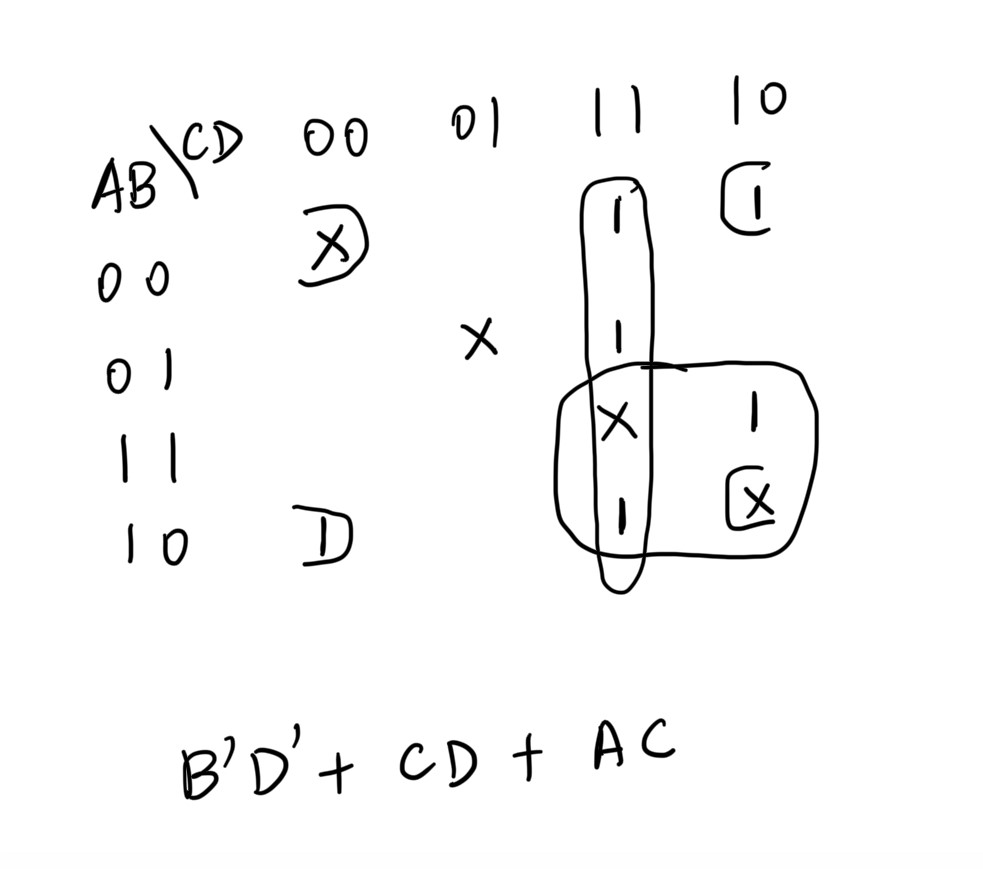 AB\CD 00 01 11 10
00 X 1 1
01 X 1
11 X 1
10 1 1 X
B'D' + CD + AC